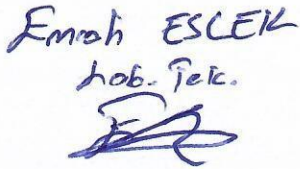 Emrah ESCEIL
Lab. Tek.